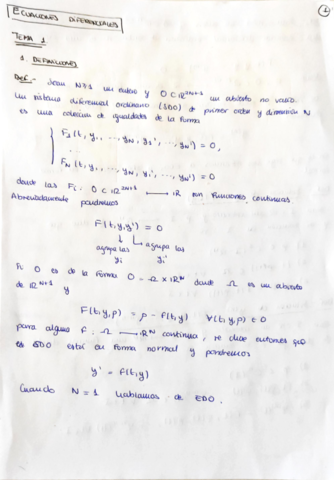 ECUACIONES DIFERENCIALES
1
TEMA 1
1. DEFINICIONES
Def.- Sean N≥1 un entero y O ⊂ ℝ^{2N+1} un abierto no vacío.
Un sistema diferencial ordinario (SDO) de primer orden y dimensión N
es una colección de igualdades de la forma
F₁(t, y₁, ..., y_N, y₁', ..., y_N') = 0,
...
F_N(t, y₁, ..., y_N, y₁', ..., y_N') = 0
donde las Fi: O ⊂ ℝ^{2N+1} ⟼ ℝ son funciones continuas
Abreviadamente pondremos
F(t, y, y') = 0
↓ ↳ agrupa las
agrupa las yi'
yi
Si O es de la forma O = Ω × ℝ^N donde Ω es un abierto
de ℝ^{N+1} y
F(t, y, p) = p - f(t, y) ∀(t, y, p) ∈ O
para alguna f: Ω ⟼ ℝ^N continua, se dice entonces que
es SDO está en forma normal y pondremos
y' = f(t, y)
Cuando N = 1 hablamos de EDO.